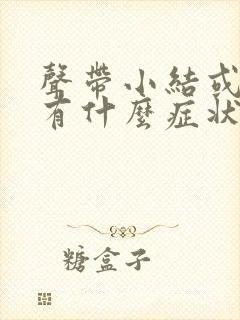 聲帶小結或
有什麼症狀
糖盒子